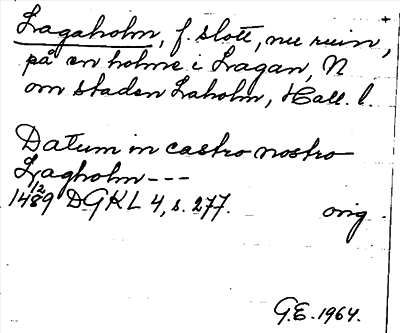 Lagaholm, f. slott, nu ruin,
på en holme i Lagan, N
om staden Laholm, Hall. l.
Datum in castro nostro
Lagholm ---
1/2
1489 DGKL 4, s. 277. orig
G.E. 1964.